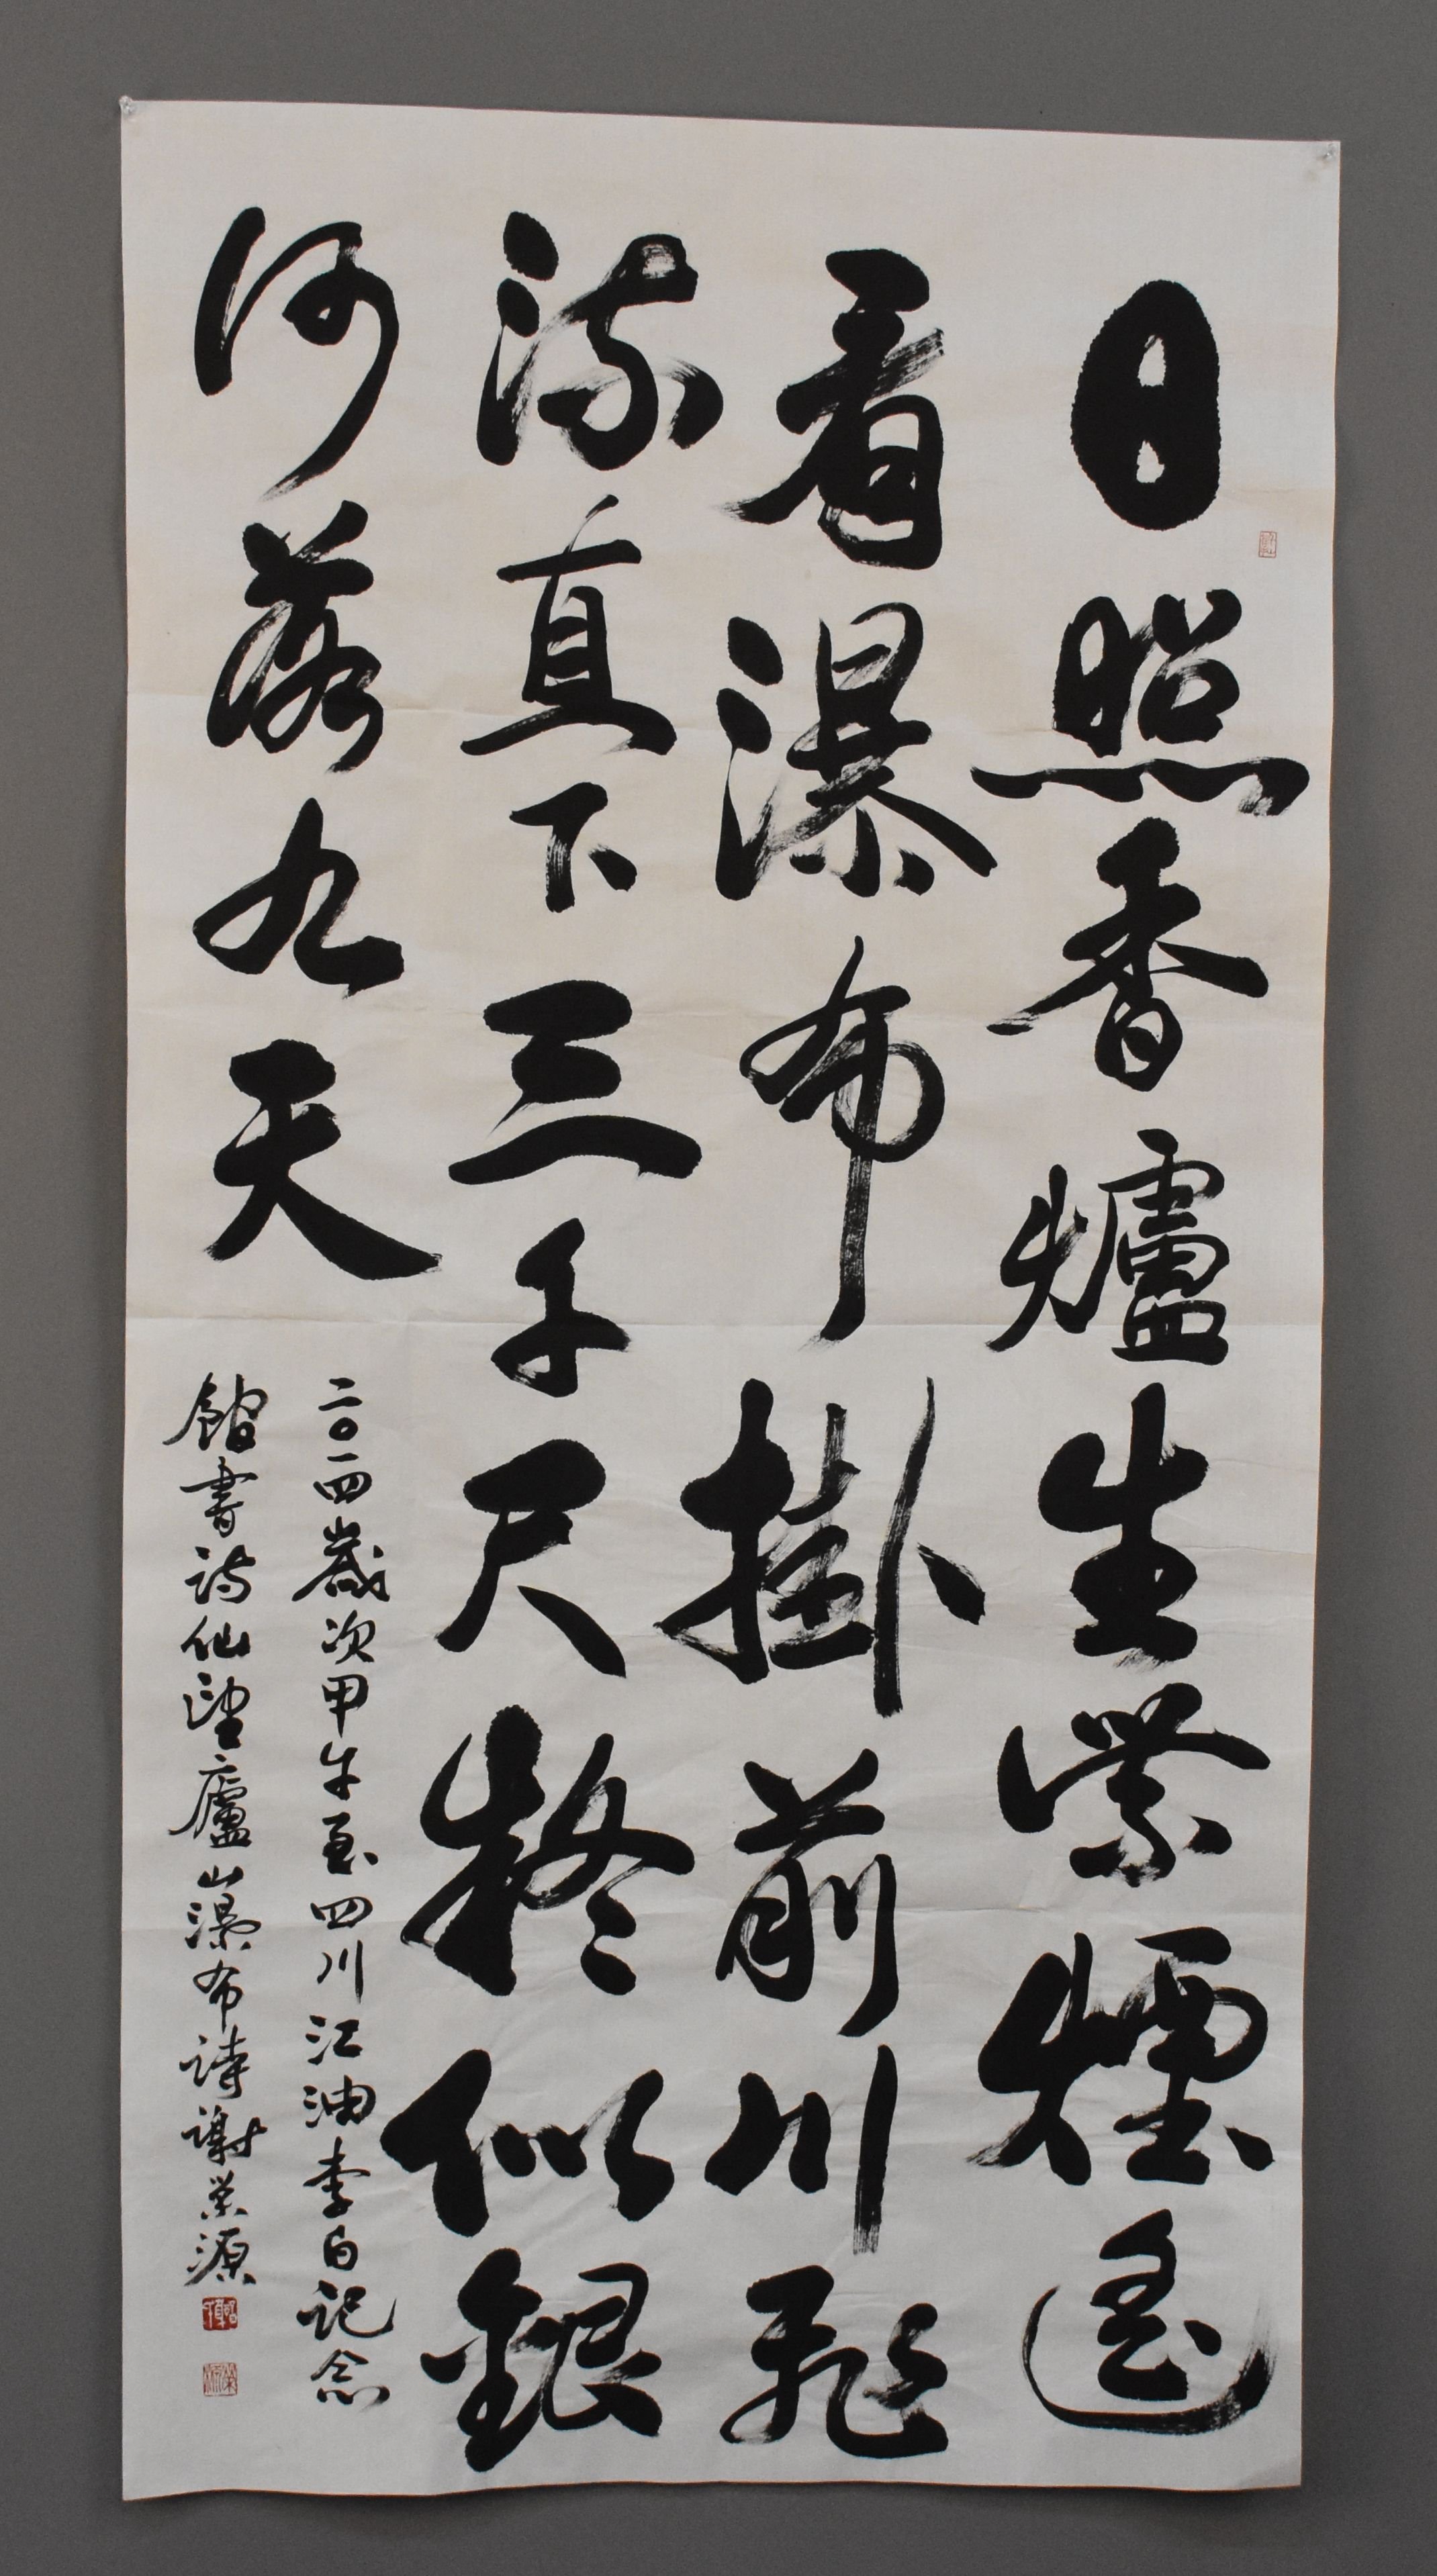 日照香爐生紫煙遙
看瀑布掛前川飛
流直下三千尺疑似銀
河落九天
二〇一四歲次甲午至四川江油李白記念
館書詩仙望廬山瀑布詩謝榮源